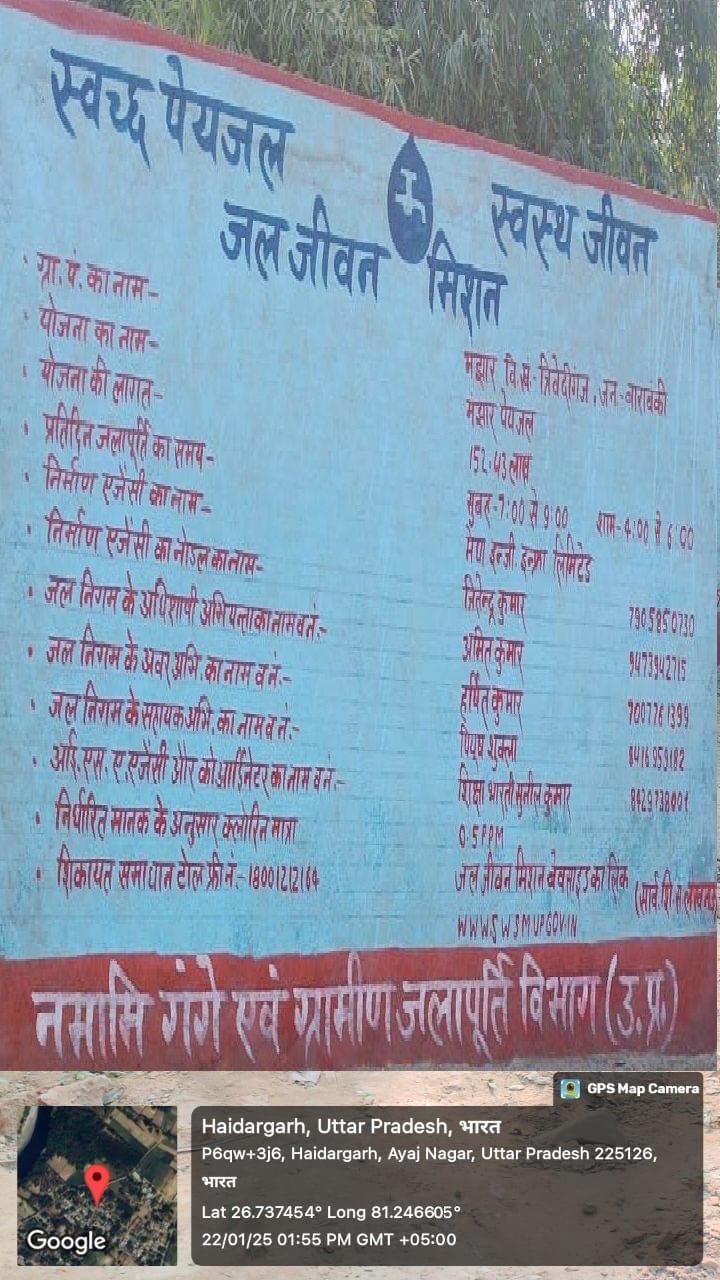 स्वच्छ पेयजल
स्वस्थ जीवन
जल जीवन मिशन
ग्रा.पं. का नाम- मझार वि.ख.- त्रिवेदीगंज, जन.- बाराबंकी
योजना का नाम- मझार पेयजल
योजना की लागत- 152.43 लाख
प्रतिदिन जलापूर्ति का समय- सुबह-7:00 से 9:00 शाम-4:00 से 6:00
निर्माण एजेंसी का नाम- इन्जी. इन्फ्रा लिमिटेड
निर्माण एजेंसी का नोडल का नाम- जितेन्द्र कुमार 7905850730
जल निगम के अधिशाषी अभियन्ता का नाम व नं.:- अमित कुमार 9473942715
जल निगम के अवर अभि. का नाम व नं.:- हर्षित कुमार 7007761399
जल निगम के सहायक अभि. का नाम व नं.:- पियुष शुक्ला 8416959182
आई.एस.ए. एजेंसी और कोआर्डिनेटर का नाम व नं.:- शिक्षा भारती सुनील कुमार 8429738001
निर्धारित मानक के अनुसार क्लोरिन मात्रा 0.5 PPM
शिकायत समाधान टोल फ्री नं.:-18001212164 जल जीवन मिशन वेवसाइड का लिंक
WWW.SWSMUP.GOV.IN
नमामि गंगे एवं ग्रामीण जलापूर्ति विभाग (उ.प्र.)
GPS Map Camera
Haidargarh, Uttar Pradesh, भारत
P6qw+3j6, Haidargarh, Ayaj Nagar, Uttar Pradesh 225126,
भारत
Lat 26.737454° Long 81.246605°
22/01/25 01:55 PM GMT +05:00
Google